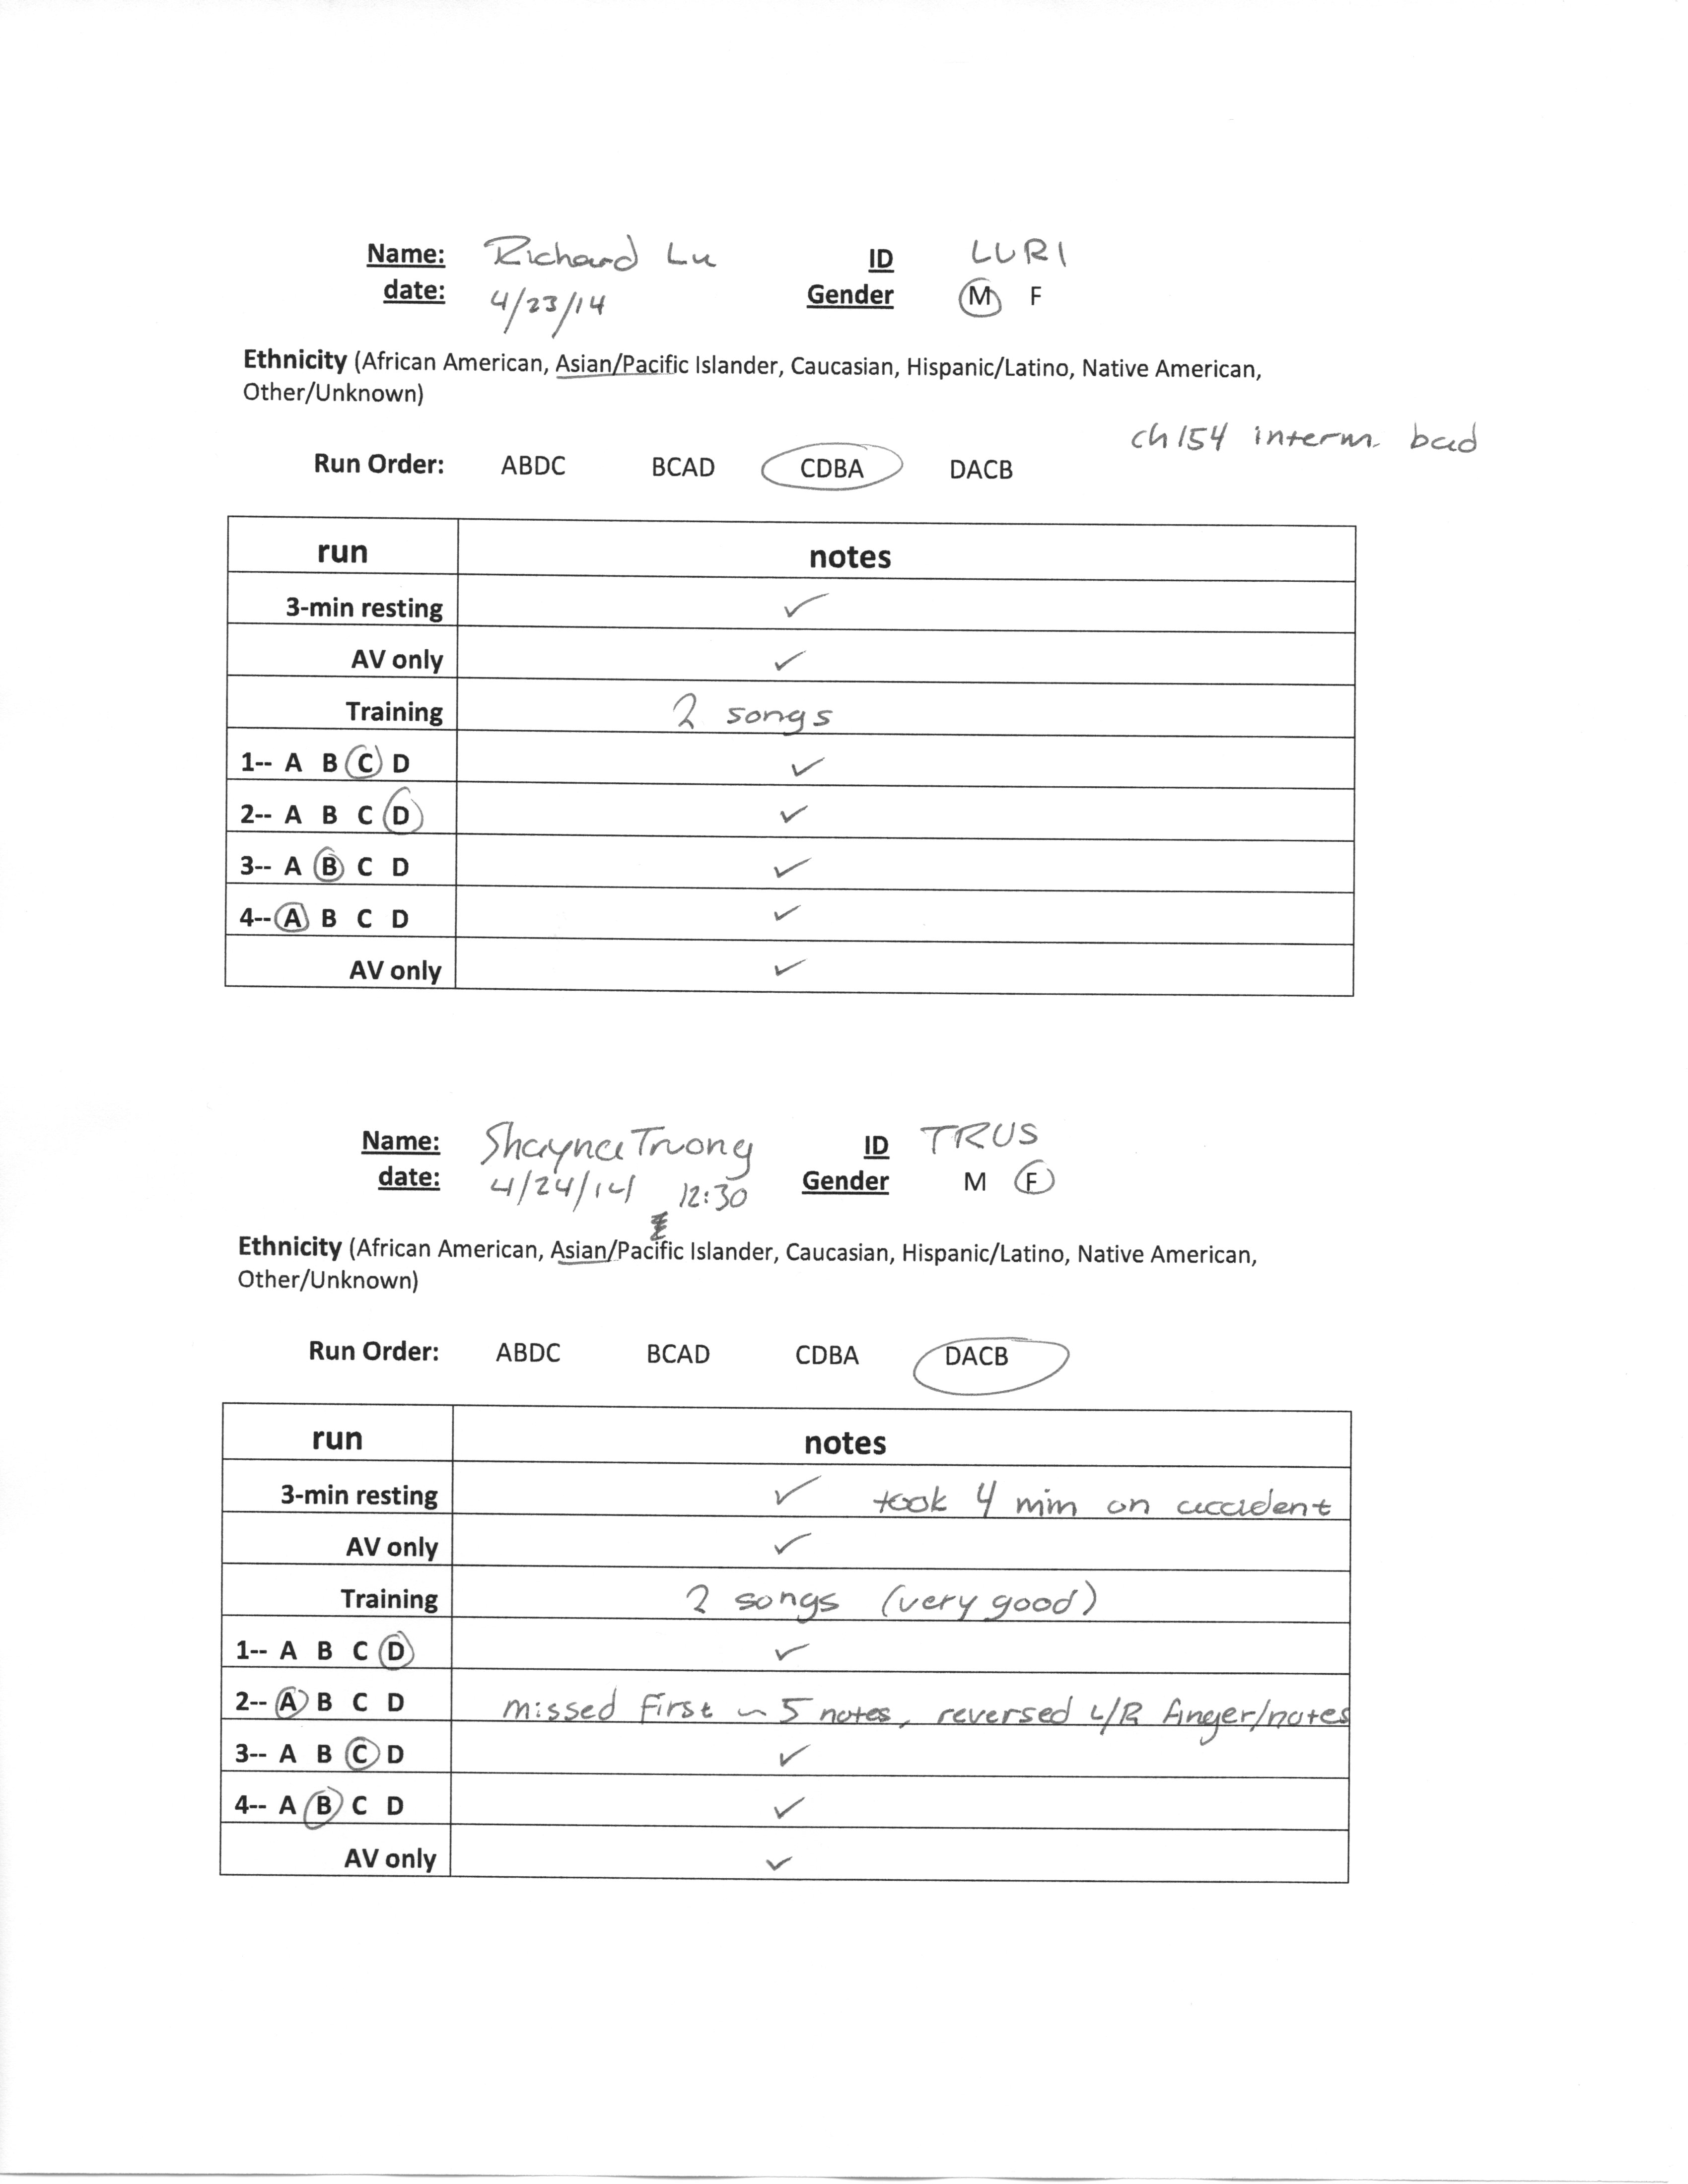 Name: Richard Lu ID LURI
date: 4/23/14 Gender M F
Ethnicity (African American, Asian/Pacific Islander, Caucasian, Hispanic/Latino, Native American,
Other/Unknown)
ch 154 interm. bad
Run Order: ABDC BCAD CDBA DACB
run notes
3-min resting ✓
AV only ✓
Training 2 songs
1-- A B C D ✓
2-- A B C D ✓
3-- A B C D ✓
4-- A B C D ✓
AV only ✓
Name: Shayna Truong ID TRUS
date: 4/24/14 12:30 Gender M F
Ethnicity (African American, Asian/Pacific Islander, Caucasian, Hispanic/Latino, Native American,
Other/Unknown)
Run Order: ABDC BCAD CDBA DACB
run notes
3-min resting ✓ took 4 min on accident
AV only ✓
Training 2 songs (very good)
1-- A B C D ✓
2-- A B C D missed first ~ 5 notes, reversed L/R finger/notes
3-- A B C D ✓
4-- A B C D ✓
AV only ✓